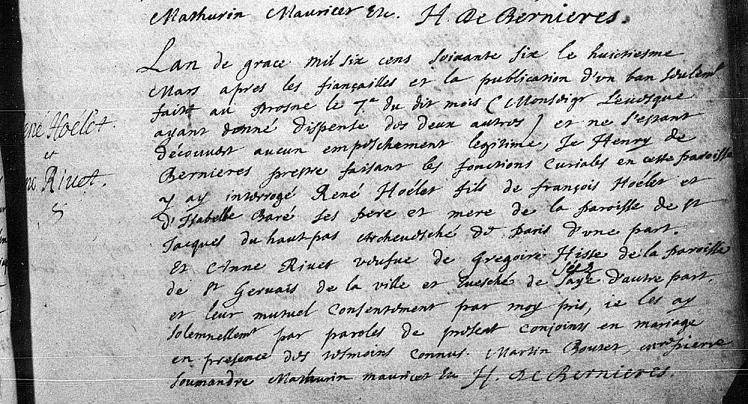 Mathurin Mauricet etc. H. De Bernieres.
Lan de grace mil six cens soixante six le huictiesme
Mars apres les fiançailles et la publication d'vn ban seulemt
faict au Prosne le 7e du dit mois (Monseigr Levesque
ayant donné dispense des deux autres) et ne s'estant
découvert aucun empeschement legitime, Je Henry de
Bernieres prestre faisant les fonctions curiales en cette paroisse
y ay interrogé René Hoélet fils de françois Hoélet et
D'Isabelle Baré ses pere et mere de la paroisse de St
Jacques du hautpas Archevesché de Paris d'vne part.
Et Anne Rivet veufve de Gregoire Hisse de la paroisse
de St Gervais de la ville et Evesché de Seez d'autre part.
et leur mutuel consentement par moy pris, ie les ay
solemnellemt par paroles de present conjoints en mariage
en presence des tesmoins connus. Martin Boutet, pierre
soumandre Mathurin mauricet etc H. De Bernieres.
ené Hoelet.
et
ne Rivet.